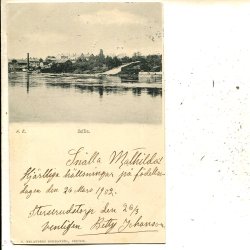 Säffle.
Snälla Mathilda!
Hjärtliga hälsningar på födelse-
dagen den 24 Mars 1902.
den 20/3
vänligen Betty Johanson